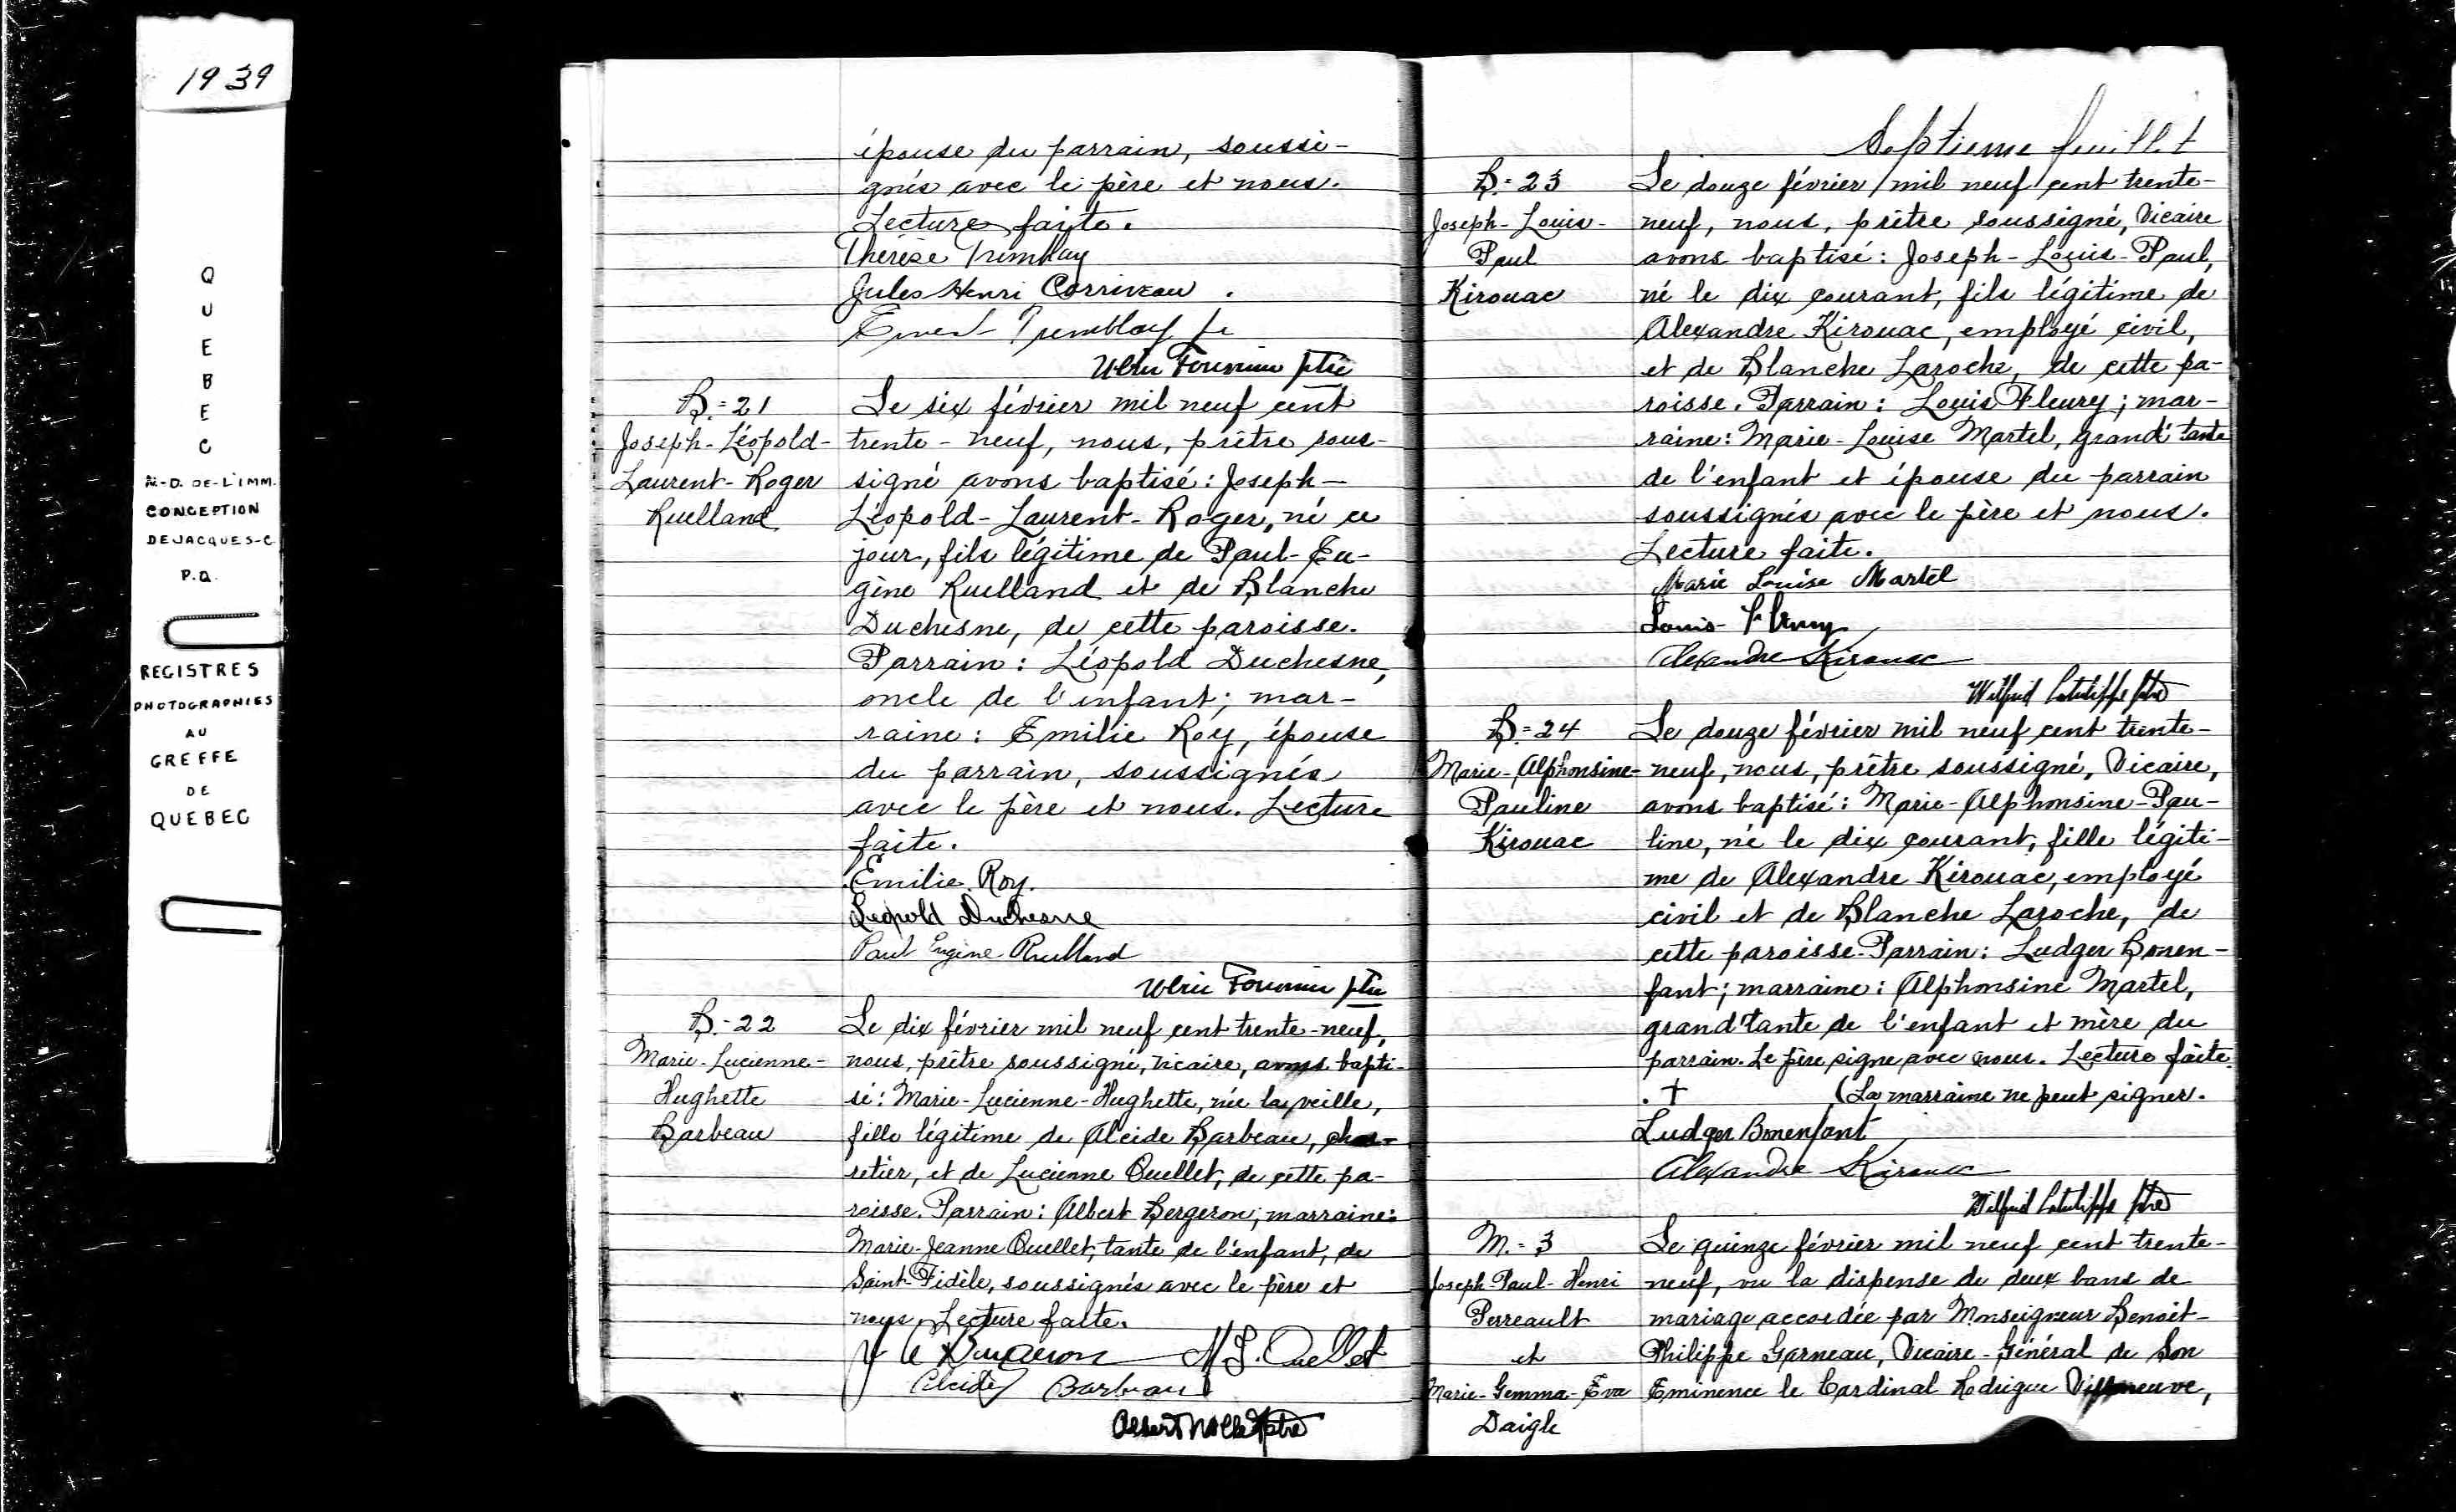 1939
QUEBEC
N-D. DE-L'IMM.
CONCEPTION
DE JACQUES-C
P.Q.
REGISTRES
PHOTOGRAPHIES
AU
GREFFE
DE
QUEBEC
épouse du parrain, soussi-
gnés avec le père et nous.
Lecture faite.
Thérèse Tremblay
Jules Henri Corriveau.
Ernest Tremblay
Ulric Fournier ptre
B.=21
Joseph-Léopold-
Laurent-Roger
Ruelland
Le six février mil neuf cent
trente-neuf, nous, prêtre sous-
signé avons baptisé: Joseph-
Léopold-Laurent-Roger, né ce
jour, fils légitime de Paul-Eu-
gène Ruelland et de Blanche
Duchesne, de cette paroisse.
Parrain: Léopold Duchesne,
oncle de l'enfant; mar-
raine: Emilie Roy, épouse
du parrain, soussignés
avec le père et nous. Lecture
faite.
Emilie Roy.
Léopold Duchesne
Paul Eugène Ruelland
Ulric Fournier ptre
B.-22
Marie-Lucienne-
Hughette
Barbeau
Le dix février mil neuf cent trente-neuf,
nous, prêtre soussigné, vicaire, avons bapti-
sé: Marie-Lucienne-Hughette, née la veille,
fille légitime de Alcide Barbeau, char-
retier, et de Lucienne Ouellet, de cette pa-
roisse. Parrain: Albert Bergeron; marraine:
Marie-Jeanne Ouellet, tante de l'enfant, de
Saint-Fidèle, soussignés avec le père et
nous. Lecture faite.
Bergeron M J. Ouellet
Alcide Barbeau
Albert ptre
Septieme feuillet
B.=23
Joseph-Louis-
Paul
Kirouac
Le douze février mil neuf cent trente-
neuf, nous, prêtre soussigné, Vicaire
avons baptisé: Joseph-Louis-Paul,
né le dix courant, fils légitime de
Alexandre Kirouac, employé civil,
et de Blanche Laroche, de cette pa-
roisse. Parrain: Louis Fleury; mar-
raine: Marie-Louise Martel, grand'tante
de l'enfant et épouse du parrain
soussignés avec le père et nous.
Lecture faite.
Marie Louise Martel
Louis Fleury
Alexandre Kirouac
Wilfrid Latulippe ptre
B.=24
Marie-Alphonsine-
Pauline
Kirouac
Le douze février mil neuf cent trente-
neuf, nous, prêtre soussigné, Vicaire,
avons baptisé: Marie-Alphonsine-Pau-
line, né le dix courant, fille légiti-
me de Alexandre Kirouac, employé
civil et de Blanche Laroche, de
cette paroisse. Parrain: Ludger Bonen-
fant; marraine: Alphonsine Martel,
grand'tante de l'enfant et mère du
parrain. Le père signe avec nous. Lecture faite.
. † (La marraine ne peut signer.
Ludger Bonenfant
Alexandre Kirouac
Wilfrid Latulippe ptre
M.=3
Joseph-Paul-Henri
Perreault
et
Marie-Gemma-Eva
Daigle
Le quinze février mil neuf cent trente-
neuf, vu la dispense de deux bans de
mariage accordée par Monseigneur Benoit-
Philippe Garneau, Vicaire-Général de Son
Eminence le Cardinal Rodrigue Villeneuve,